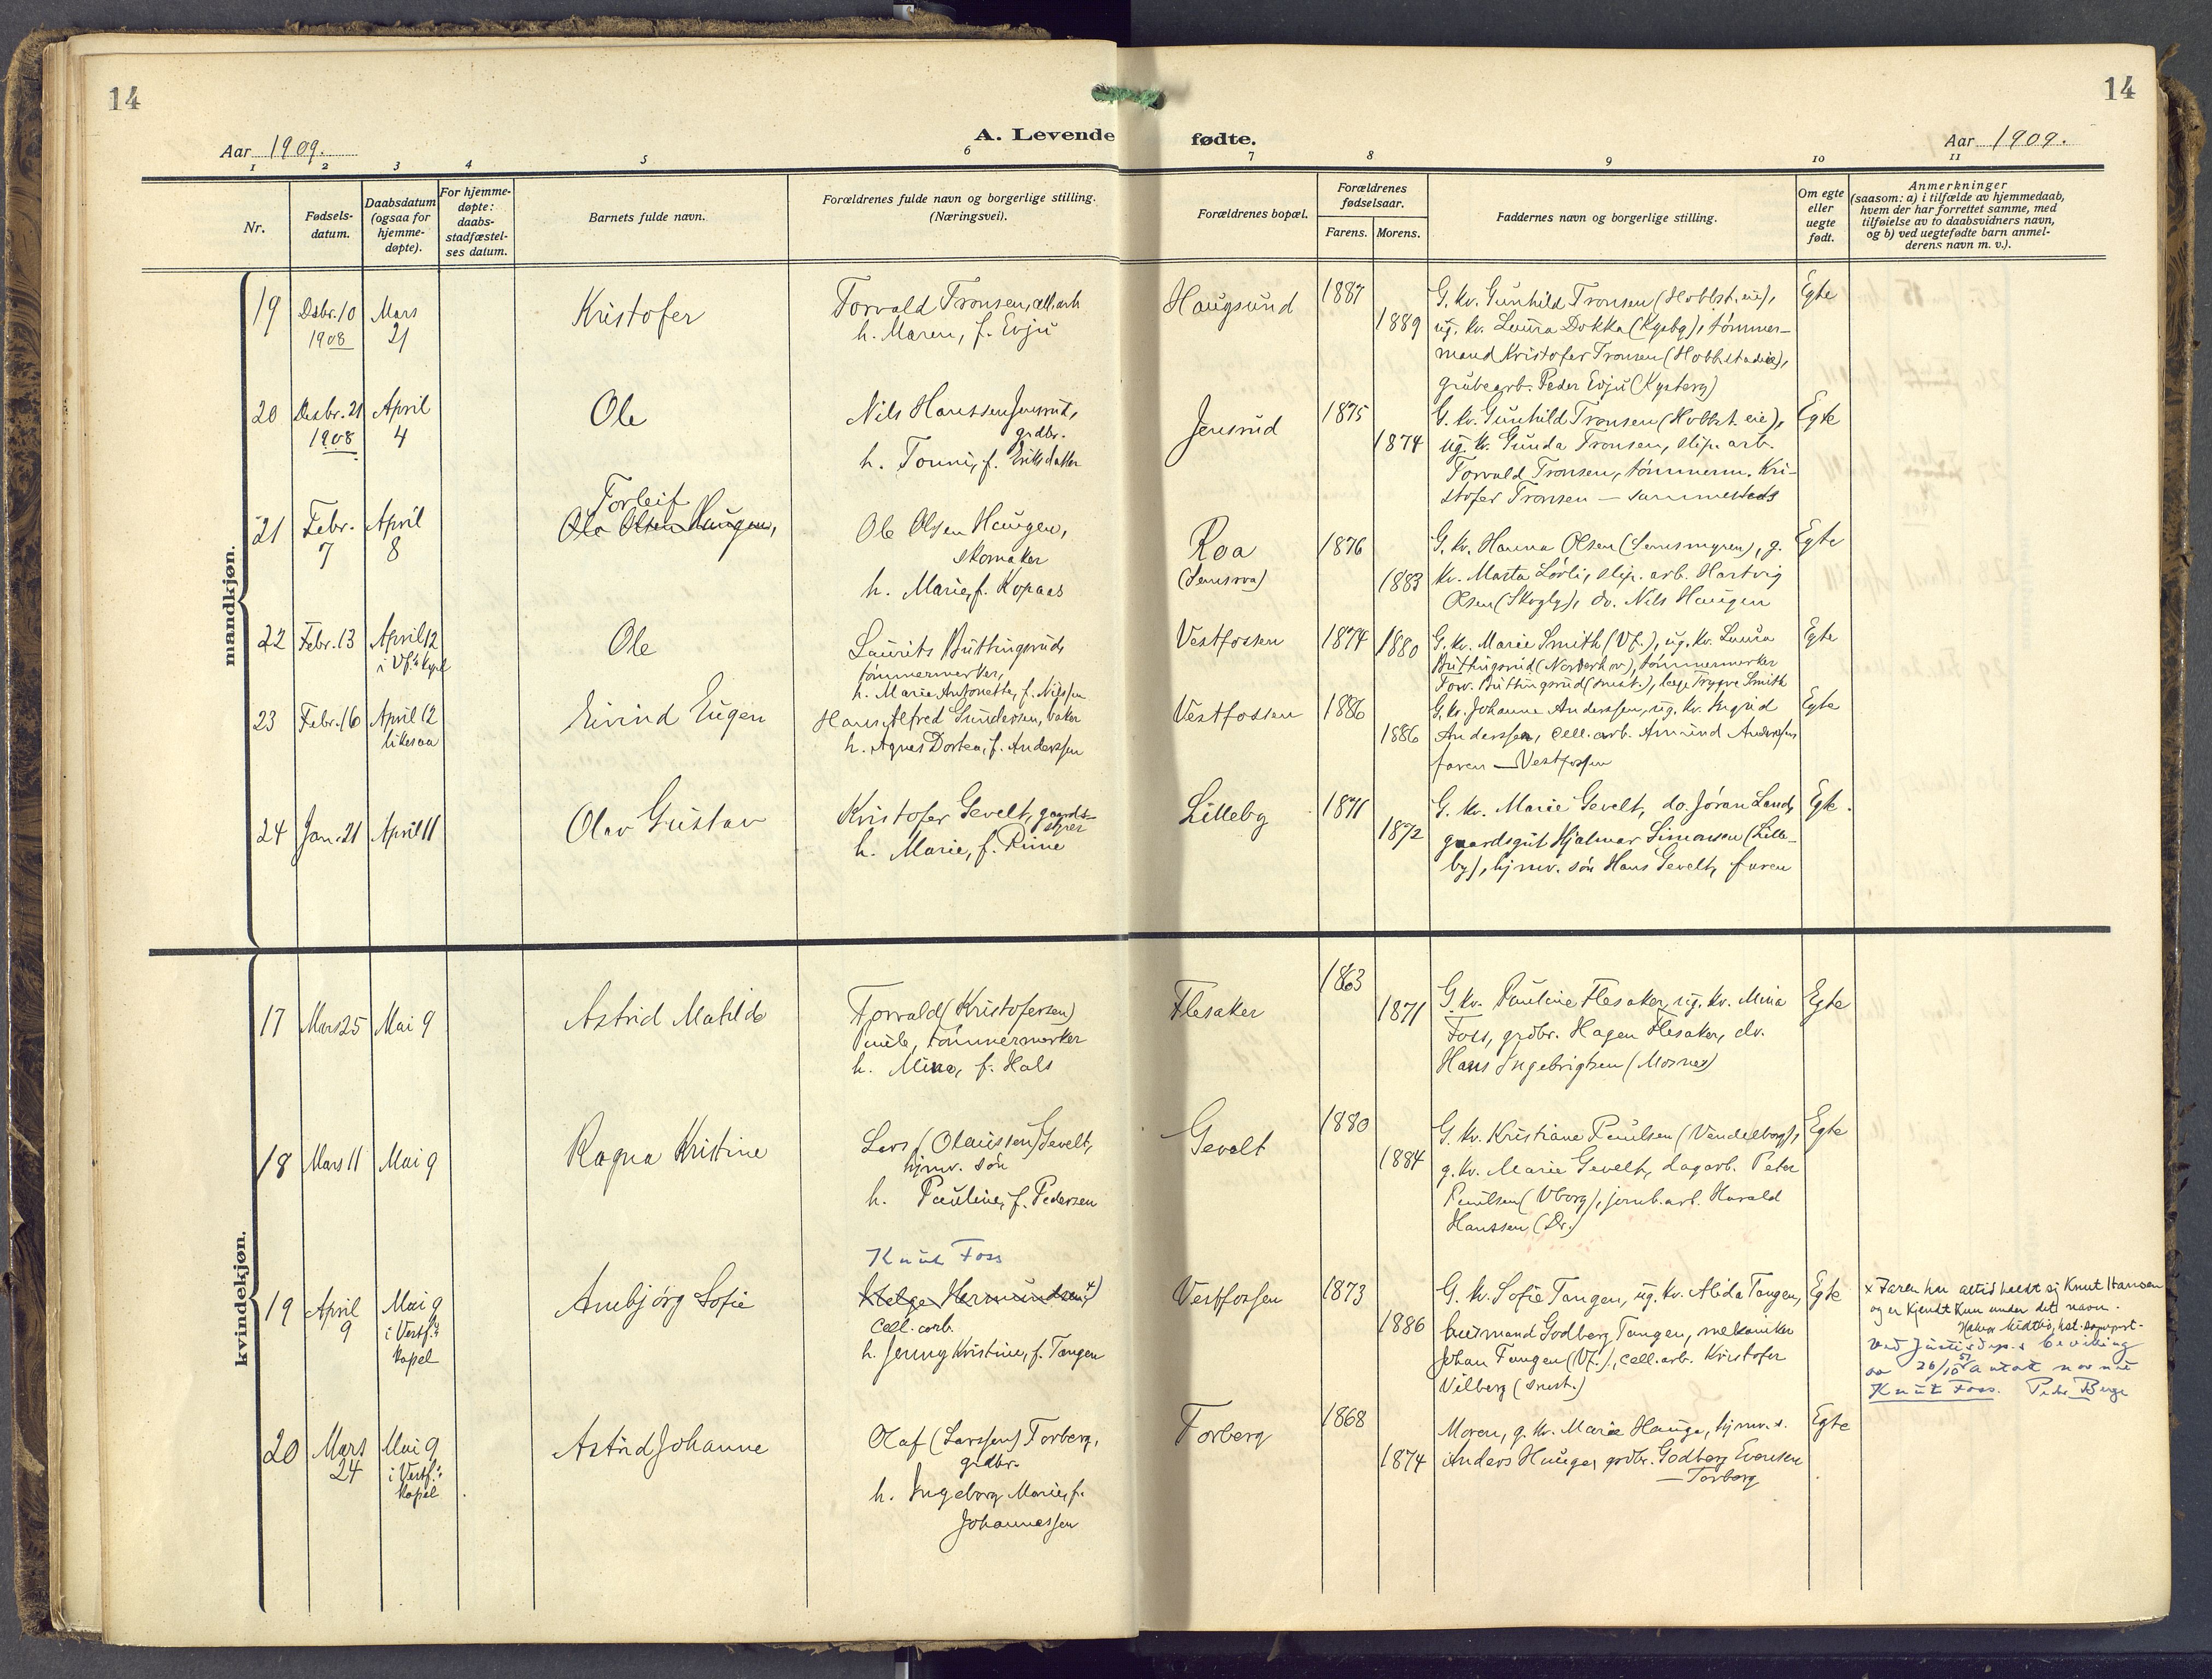 14
14
Aar 1909.
A. Levende fødte.
Aar 1909.
1 2 3 4 5 6 7 8 9 10 11
Nr.
Fødsels-
datum.
Daabsdatum
(ogsaa for
hjemme-
døpte).
For hjemme-
døpte:
daabs-
stadfæstel-
ses datum.
Barnets fulde navn.
Forældrenes fulde navn og borgerlige stilling.
(Næringsvei).
Forældrenes bopæl.
Forældrenes
fødselsaar.
Farens. Morens.
Faddernes navn og borgerlige stilling.
Om egte
eller
uegte
født.
Anmerkninger
(saasom: a) i tilfælde av hjemmedaab,
hvem der har forrettet samme, med
tilføielse av to daabsvidners navn,
og b) ved uegtefødte barn anmel-
derens navn m. v.).
mandkjøn.
19
Dsbr. 10
1908
Mars
21
Kristofer
Torvald Tronsen, cell.arb
h. Maren, f. Evju
Haugsund
1887
1889
G. kv. Gunhild Tronsen (Hobbst. eie),
ug. kv. Laura Dokka (Kyeby), tømmer-
mand Kristofer Tronsen (Hobbstadeie),
grubearb. Peder Evju (Kysberg)
Egte
20
Desbr. 21
1908
April
4
Ole
Nils Hanssen Jensrud,
grdbr.
h. Tonni, f. Eriksdatter
Jensrud
1875
1874
G. kv. Gunhild Tronsen (Hobbst. eie),
ug. kv. Gunda Tronsen, slip. arb.
Torvald Tronsen, tømmerm. Kri-
stofer Tronsen — sammesteds
Egte
21
Febr.
7
April
8
Torleif
Ole Olsen Haugen,
Ole Olsen Haugen,
skomaker
h. Marie, f. Kopaas
Roa
(Semsroa)
1876
1883
G. kv. Hanna Olsen (Semsmyren), g.
kv. Marta Lørli, slip. arb. Hartvig
Olsen (Skogly), do. Nils Haugen
Egte
22
Febr. 13
April 12
i Vf.s kapel
Ole
Laurits Buttingsrud,
tømmermerker,
h. Marie Antonette, f. Nilssen
Vestfossen
1874
1880
G. kv. Marie Smith (Vf.), ug. kv. Laura
Buttingsrud (Norderhov), tømmermerker
Torv. Buttingsrud (smst.), Trygve Smith
Egte
23
Febr. 16
April 12
likesaa
Eivind Eugen
Hans Alfred Gundersen, baker
h. Agnes Dortea, f. Anderssen
Vestfossen
1886
1886
G. kv. Johanne Anderssen, ug. kv. Ingrid
Anderssen, cell. arb. Amund Anderssen
faren — Vestfossen
Egte
24
Jan. 21
April 11
Olav Gustav
Kristofer Gevelt, gaards-
styrer
h. Marie, f. Rime
Lilleby
1871
1872
G. kv. Marie Gevelt, do. Jøran Lands
gaardsgut Hjalmar Simonsen (Lille-
by), hjmv. søn Hans Gevelt, faren
Egte.
kvindekjøn.
17
Mars 25
Mai 9
Astrid Matilde
Torvald (Kristofersen)
tømmermerker
h. Mina, f. Hals
Flesaker
1863
1871
G. kv. Pauline Flesaker, ug. kv. Mina
Foss, grdbr. Hagen Flesaker, do.
Hans Ingebrigtsen (Mosnes)
Egte
18
Mars 11
Mai 9
Ragna Kristine
Lars (Olaussen) Gevelt,
hjmv. søn
h. Pauline, f. Pedersen
Gevelt
1880
1884
G. kv. Kristiane Paulsen (Vendelborg),
g. kv. Marie Gevelt, dagarb. Peter
Paulsen (Vborg), jernb. arb. Harald
Hanssen (Dr.)
Egte
19
April
9
Mai 9
i Vestf.s
kapel
Annbjørg Sofie
Knut Foss
Helge Hermundsen x)
cell. arb.
h. Jenny Kristine, f. Tangen
Vestfossen
1873
1886
G. kv. Sofie Tangen, ug. kv. Alida Tangen,
brumand Godberg Tangen, mekaniker
Johan Tangen (Vf.), cell. arb. Kristofer
Vilberg (smst.)
Egte
x Faren har altid heedt sig Knut Hansen
og er kjendt kun under det navn.
Ved Justisdep.s bevilling
av 26/10 51 antatt navnet
Knut Foss. Peder Berge
20
Mars
24
Mai 9
i Vestf.s
kapel
Astrid Johanne
Olaf (Larssen) Torberg,
grdbr.
h. Ingeborg Marie, f.
Johannessen
Torberg
1868
1874
Moren, g. kv. Marie Hauge, hjmv. s.
Anders Hauge, grdbr. Godberg Evensen
— Torberg
Egte